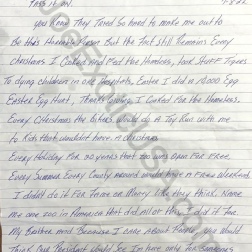 Pass it on.
you know They Tored So hard to make me out to
Be this Horrable Person But the Fact Still Remains Every
Christmas I Cooked And Fed the Homeless, took Stuff Tigers
To dying children in the Hospitals, Easter I did a 10,000 Egg
Easter Egg Hunt, Thanks Giving, I Cooked For the Homeless.
Every Christmas the bikers would do A Toy Run with me
to Kids that wouldn't have A Christmas.
Every Holiday For 20 years that Zoo was open For Free
Every Summer Every County around would have A Free Weekend
I didn't do it For Fame or Money Like they think Name
me one Zoo in America that did all of this. I did it for
My Brother and Because I Care About People. You Would
Think Our President Would See I'm here only For Someones